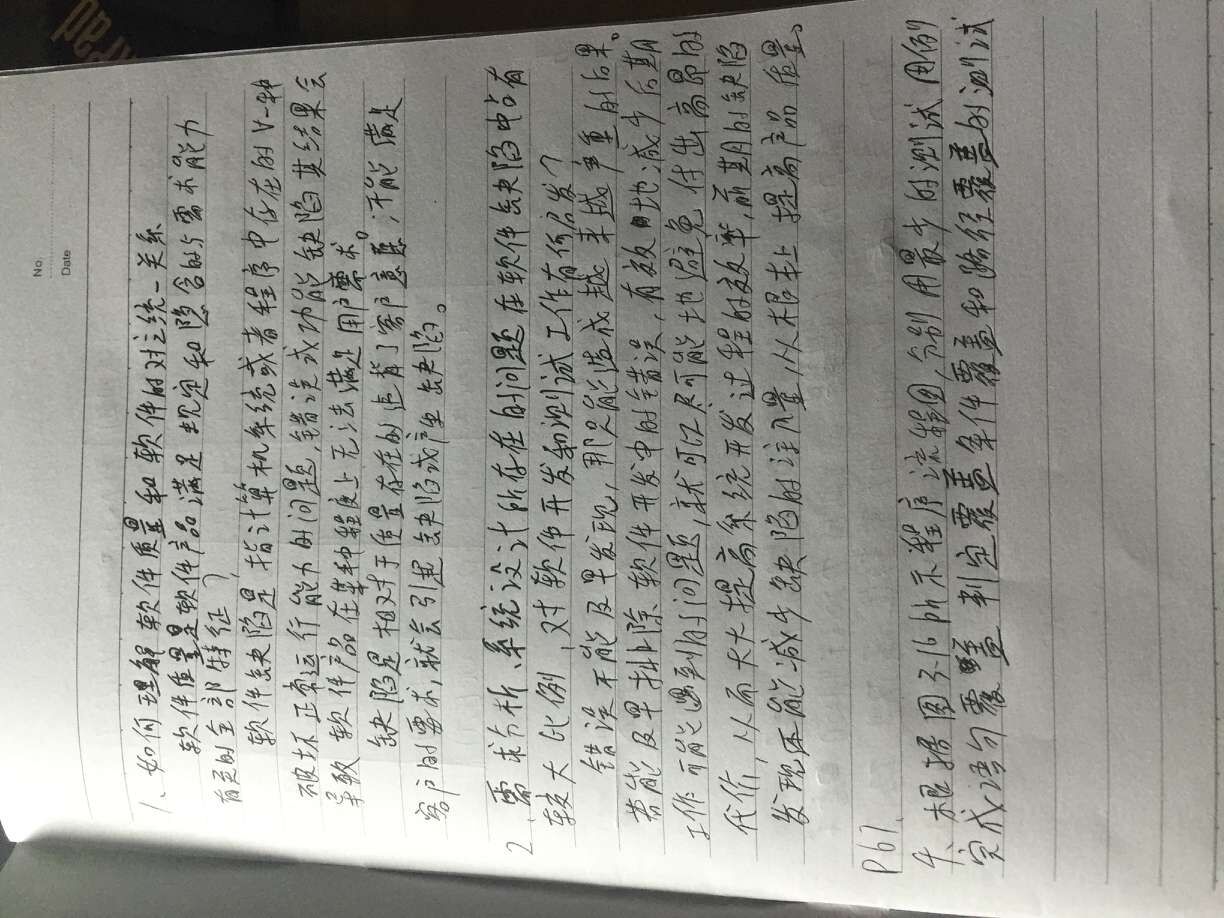 No.
Date
1、如何理解软件质量和软件的对立统一关系
软件质量是软件产品满足规定和隐含的与需求能力
有关的全部特征
软件缺陷是指计算机系统或者程序中存在的一种
破坏正常运行能力的问题,错误或功能缺陷其结果会
导致软件产品在某种程度上无法满足用户需求。
缺陷是相对于质量存在的违背了客户意愿,不能满足
客户的需求,就会引起缺陷或产生缺陷。
2、需求分析、系统设计所存在的问题在软件缺陷中占有
较大比例,对软件开发和测试工作有何启发?
错误不能及早发现,那只能造成越来越严重的后果。
若能及早排除软件开发中的错误,有效地减少后期
工作可能遇到的问题,就可以尽可能地避免付出高昂的
代价,从而大大提高系统开发过程的效率,前期的缺陷
发现还能减少缺陷的注入量,从根本上提高产品质量。
P67
4、根据图3-16所示程序流程图,分别用最少的测试用例
完成语句覆盖 判定覆盖 条件覆盖和路径覆盖的测试